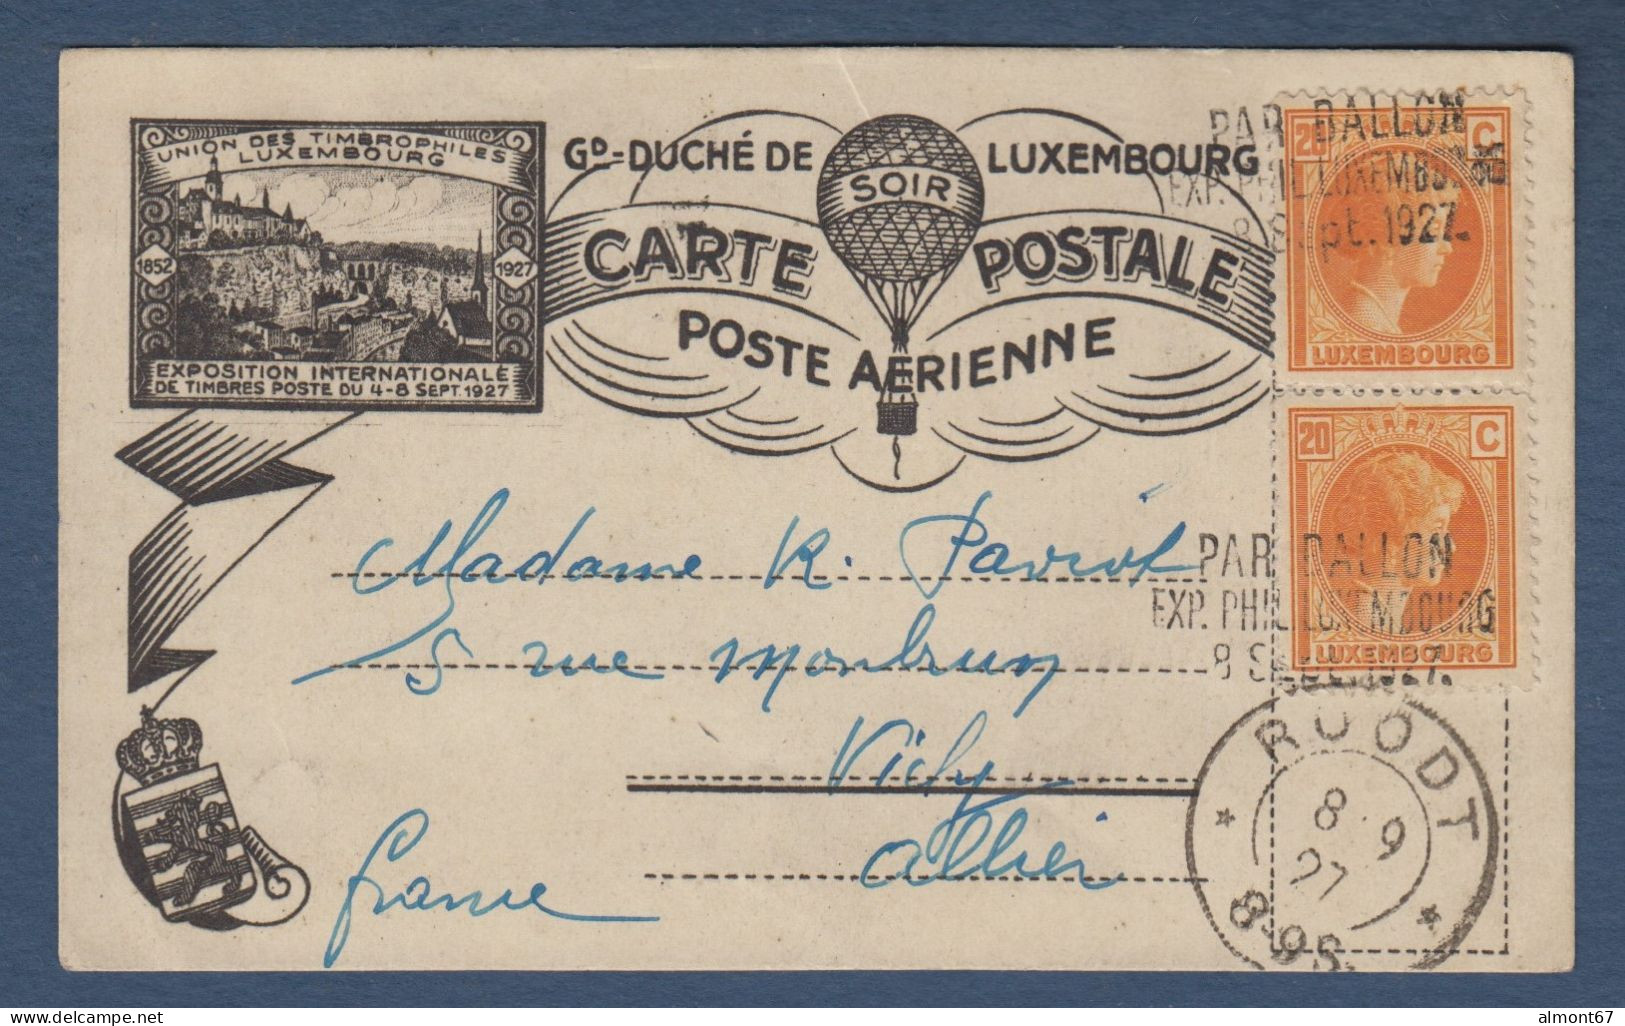 UNION DES TIMBROPHILES
LUXEMBOURG
1852
1927
EXPOSITION INTERNATIONALE
DE TIMBRES POSTE DU 4-8 SEPT. 1927
GD=DUCHÉ DE LUXEMBOURG
SOIR
CARTE POSTALE
POSTE AÉRIENNE
20 C
LUXEMBOURG
PAR BALLON
EXP. PHIL. LUXEMBOURG
8 Sept. 1927.
20 C
LUXEMBOURG
PAR BALLON
EXP. PHIL. LUXEMBOURG
8 Sept. 1927.
Madame R. Paviot
5 rue Montbrun
Vichy
Allier
france
ROODT
8 9
27
8-9S.
almont67